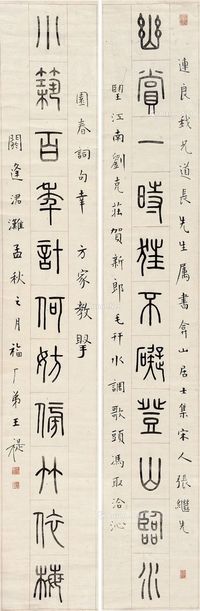 連良我兄道長先生属書弇山居士集宋人張繼先
幽賞一時狂不礙登山臨水
望江南劉克莊賀新郎毛幵水調歌頭馮取洽沁
園春詞句幸方家教
小築百年計何妨傍竹依梅
閼逢涒灘孟秋之月福厂弟王禔